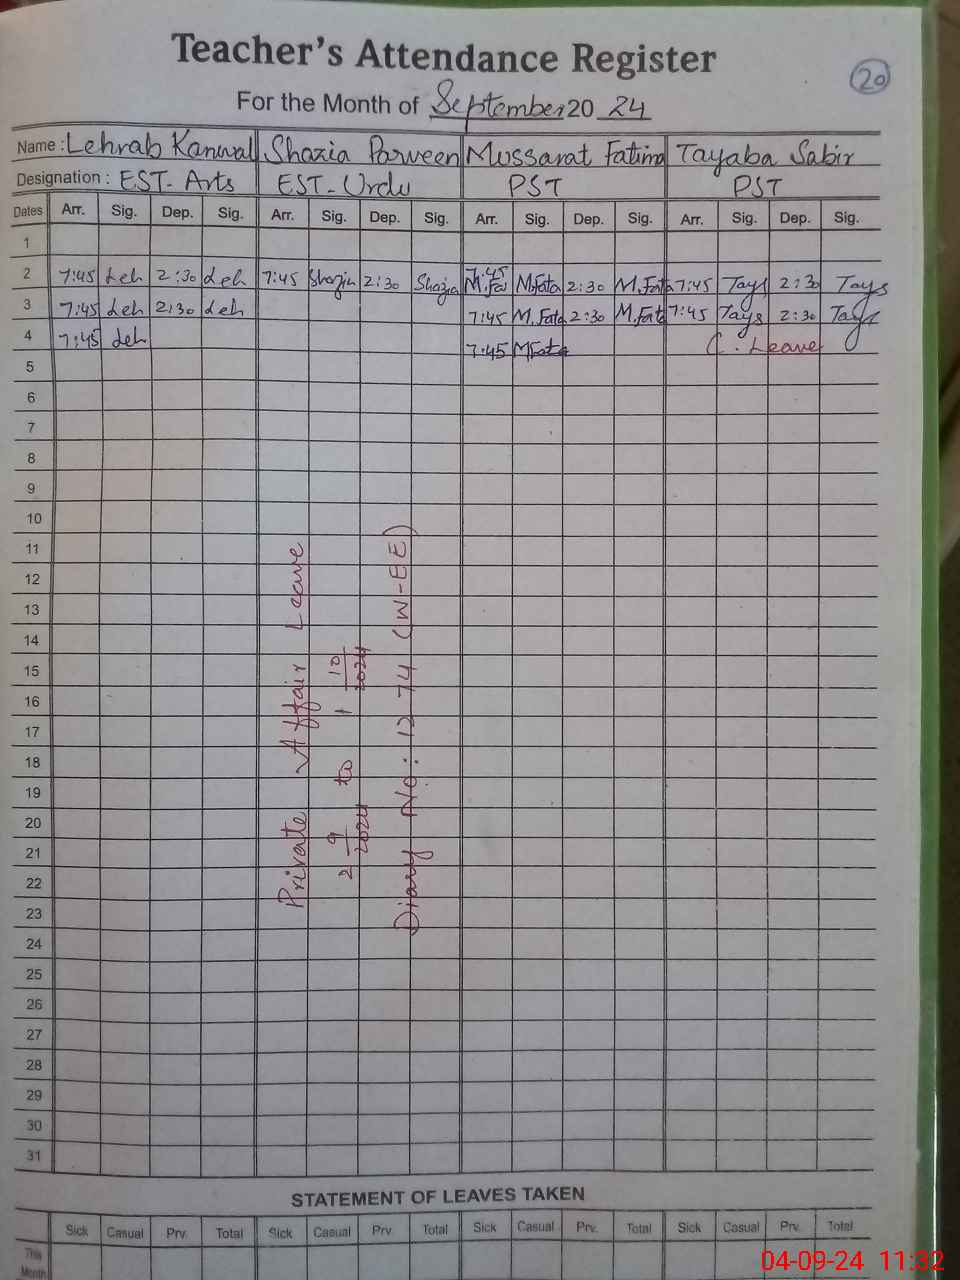 Teacher's Attendance Register
20
For the Month of September 20 24
Name : Lehrab Kanwal Shazia Parween Mussarat Fatima Tayaba Sabir
Designation : EST- Arts EST-Urdu PST PST
Dates Arr. Sig. Dep. Sig. Arr. Sig. Dep. Sig. Arr. Sig. Dep. Sig. Arr. Sig. Dep. Sig.
1
2 7:45 Leh 2:30 Leh 7:45 Shazia 2:30 Shazia 7:45 M.Fata 2:30 M.Fata 7:45 Tays 2:30 Tays
3 7:45 Leh 2:30 Leh 7:45 M.Fata 2:30 M.Fata 7:45 Tays 2:30 Tays
4 7:45 Leh 7:45 MFata C. Leave
5
6
7
8
9
10
11
12
13
14
15
16
17
18
19
20
21
22
23
24
25
26
27
28
29
30
31
Private Affair Leave
2 9/2024 to 1 10/2024
Diary No: 1274 (W-EE)
STATEMENT OF LEAVES TAKEN
Sick Casual Prv. Total Sick Casual Prv. Total Sick Casual Prv. Total Sick Casual Prv. Total
This
Month
04-09-24 11:32